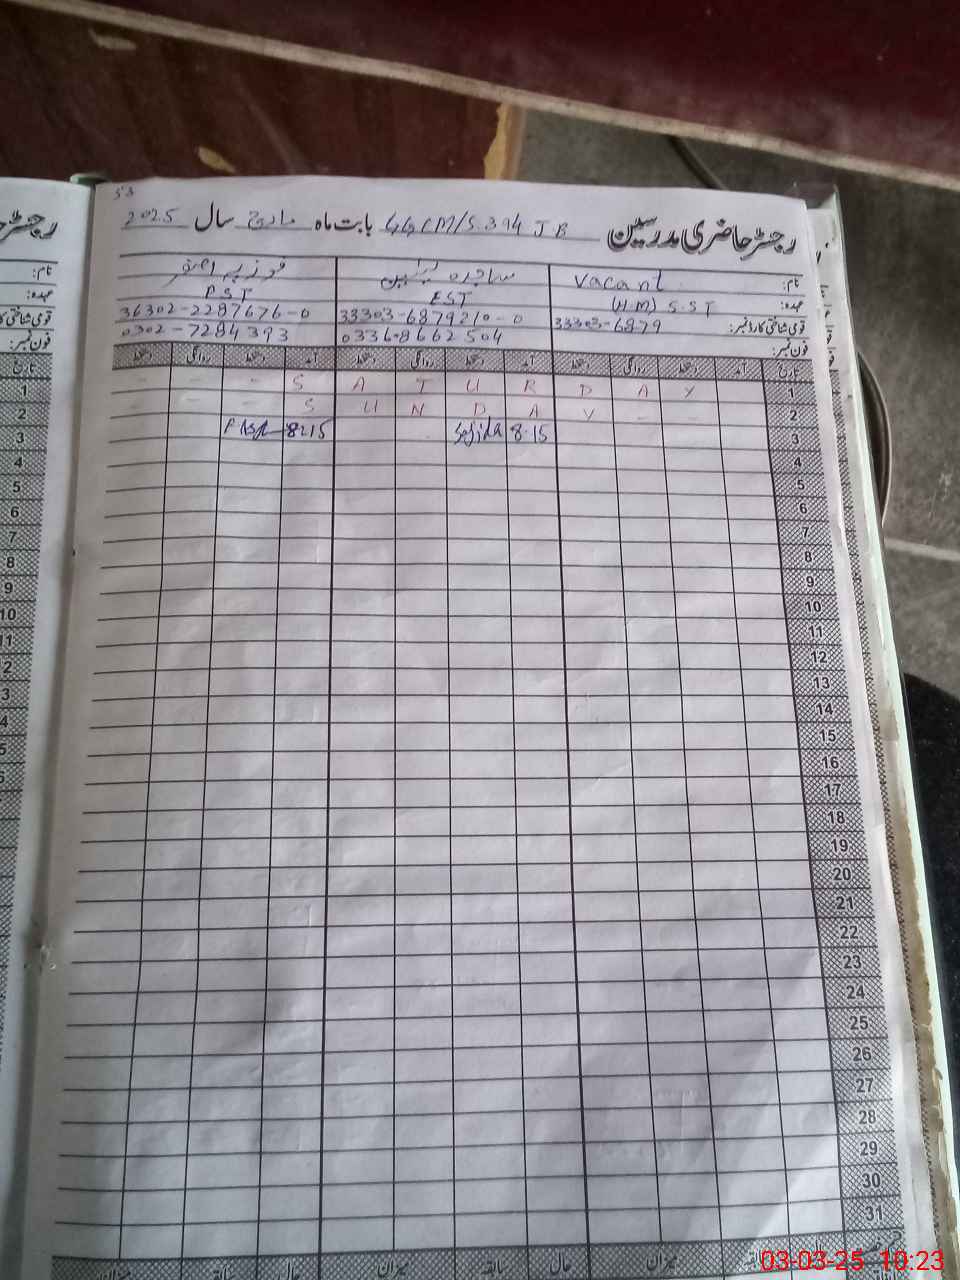 53
رجسٹر حاضری مدرسین GGCM/S.394 JB بابت ماہ مارچ سال 2025
نام: Vacant ساجدہ فوزیہ
عہدہ: (H.M) S.ST EST PST
قومی شناختی کارڈ نمبر: 33303-6879 33303-6879210-0 36302-2287676-0
فون نمبر: 0336-8662504 0302-7284393
تاریخ آمد دستخط روانگی دستخط آمد دستخط روانگی دستخط آمد دستخط روانگی دستخط
1 - - - S A T U R D A Y
2 - - - S U N D A Y - -
3 8:15 Sajida 8.15
4
5
6
7
8
9
10
11
12
13
14
15
16
17
18
19
20
21
22
23
24
25
26
27
28
29
30
31
میزان حال سابقہ میزان حال
03-03-25 10:23